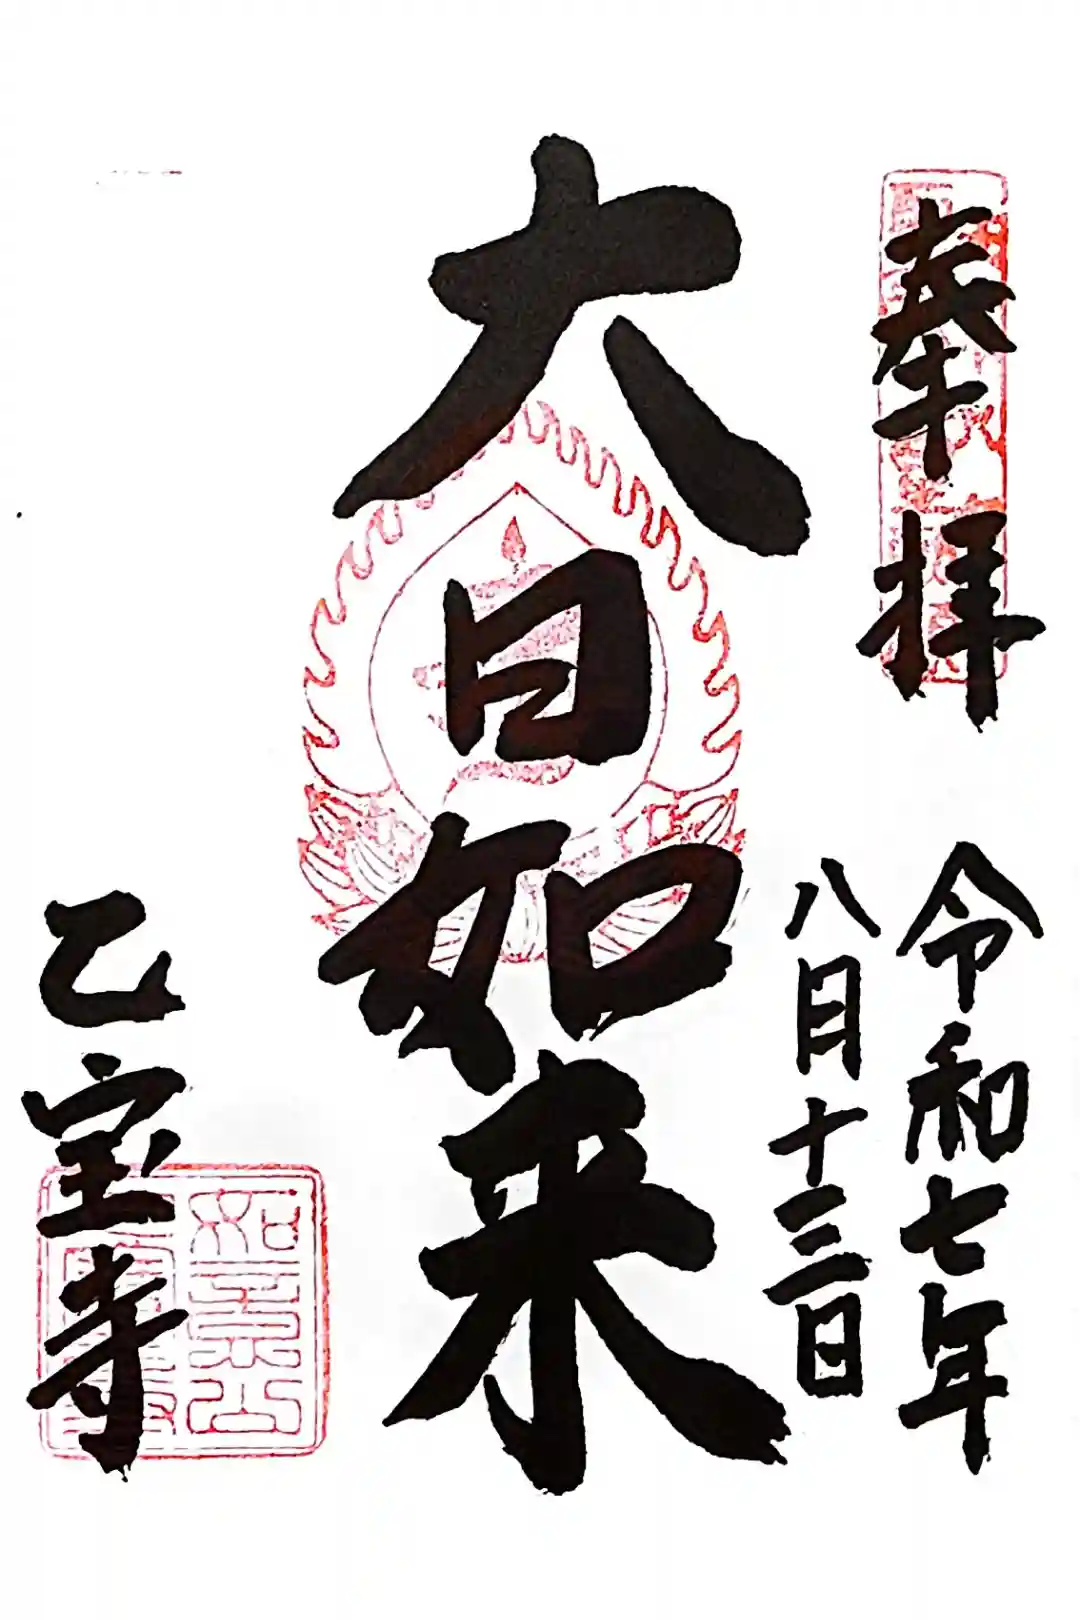 奉拝
令和七年
八月十三日
大日如来
乙宝寺
如意山